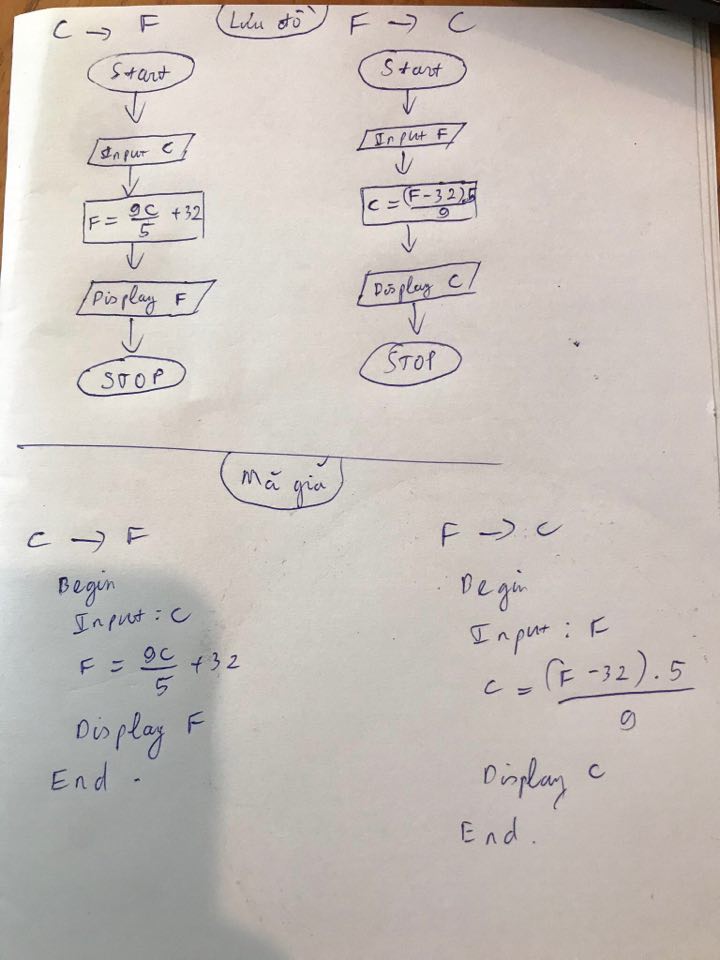 C → F
Lưu đồ
F → C
Start
Input C
F = 9C/5 + 32
Display F
STOP
Start
Input F
C = (F-32).5/9
Display C
STOP
Mã giả
C → F
Begin
Input : C
F = 9C/5 + 32
Display F
End .
F → C
Begin
Input : F
C = (F - 32) . 5/9
Display C
End .